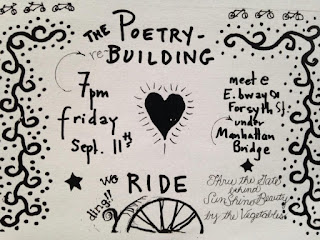 THE POETRY-
re-
BUILDING
7pm
friday
Sept. 11th
meet @
E. bway &
Forsyth St.
under
Manhattan
Bridge
we RIDE
ding!!
Thru the Gate
behind
SunShine Beauty
by the Vegetables